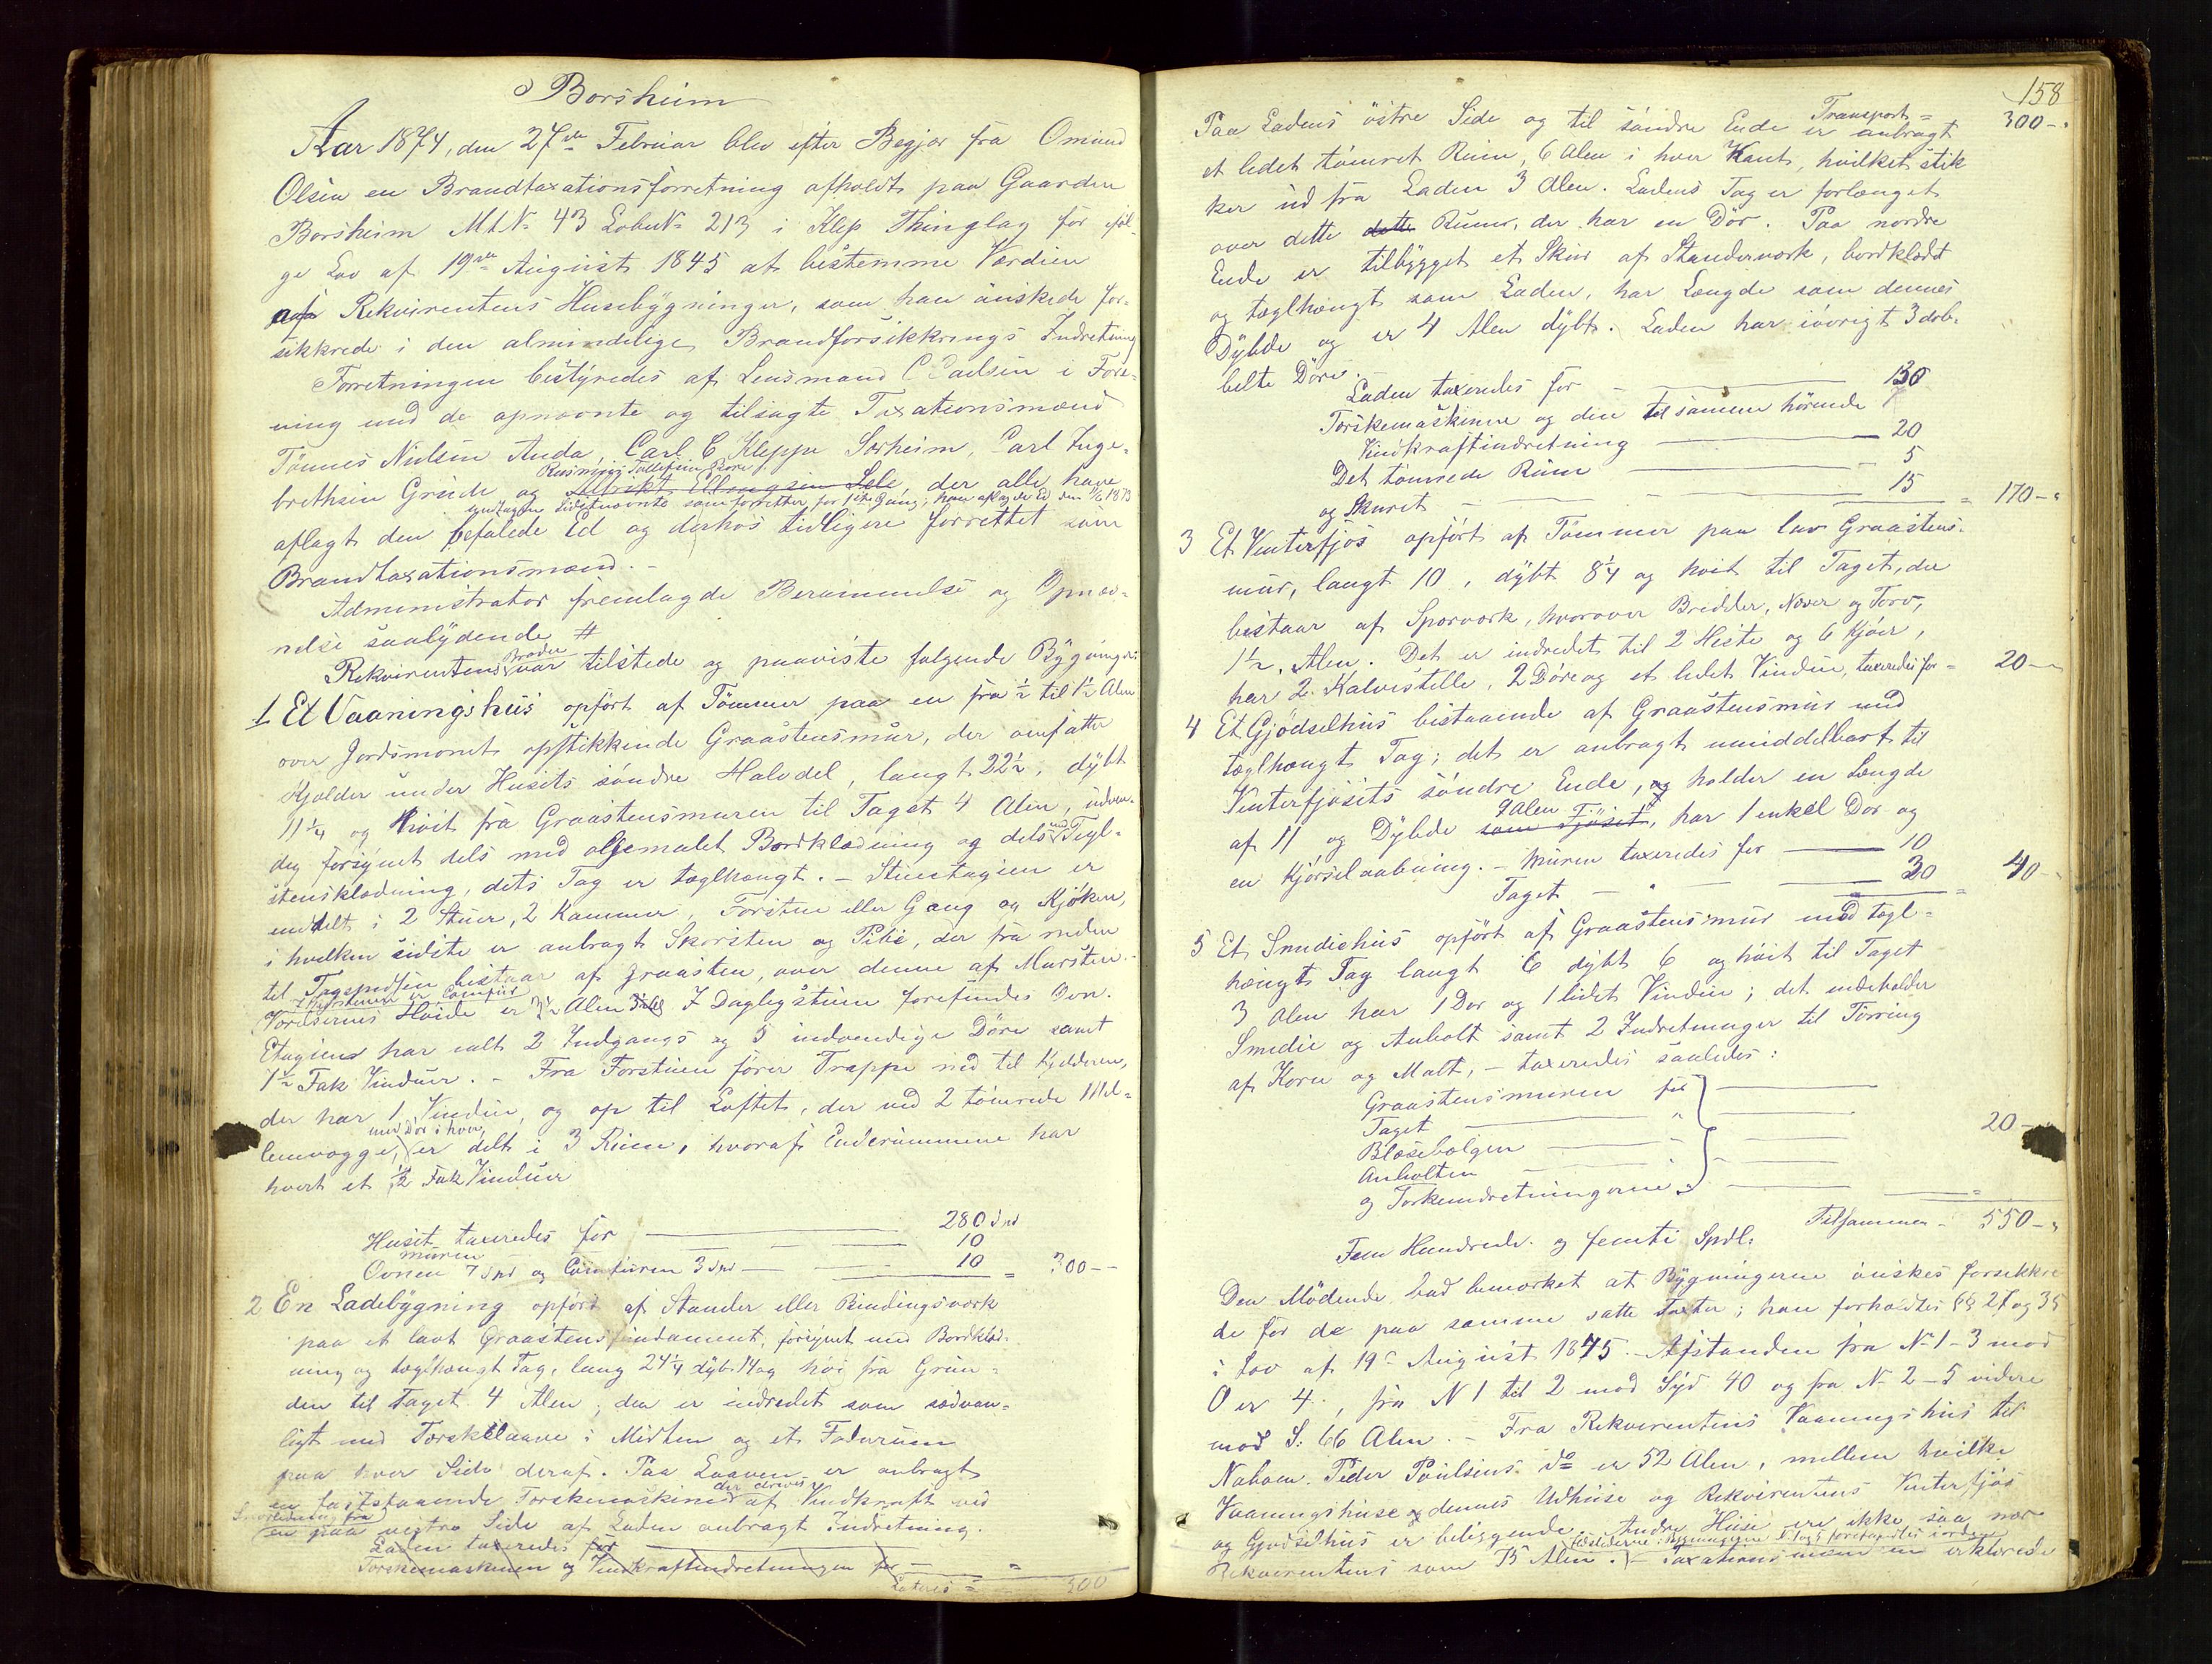 Borsheim
Aar 1874, den 27de Februar blev efter Begjær fra Omund
Olsen en Brandtaxationsforretning afholdt paa Gaarden
Borsheim Mt N: 43 Løbe N: 213 i Klep Thinglag for iføl-
ge Lov af 19de August 1845 at bestemme Værdien
af Rekvirentens Husebygninger, som han ønskede for-
sikkrede i den almindelige Brandforsikkrings Indretning
Forretningen bestyredes af Lensmand C Paulsen i For-
ening med de opnævnte og tilsagte Taxationsmænd
Tønnes Nielsen Anda, Carl C Kleppe Sørheim, Carl Inge-
Rasmus Tollefsen Bore
brethsen Grude og Ellingsen Sele, der alle have
undtagen sidstnævnte som forretter for 1ste Gang; han aflagde Ed den 1/6 1873
aflagt den befalede Ed og derhos tidligere forrettet som
Brandtaxationsmænd.-
Administrator fremlagde Berammelse og Opnæv-
nelse saalydende #
Broder
Rekvirentens var tilstede og paaviste følgende Bygninger:
1 Et Vaaningshus opført af Tømmer paa en fra ½ til 1½ Alen
over Jordsmonet opstikkende Graastensmur, der omfatter
Kjælder under Husets søndre Halvdel, langt 22½, dybt
11¼ og høit fra Graastensmuren til Taget 4 Alen, udven-
dig forsynet dels med oljemalet Bordklædning og dels med Tegl-
stensklædning, dets Tag er tæglhængt. - Stueetagien er
inddelt i 2 Stuer, 2 Kammer, Forstue eller Gang og Kjøken,
i hvilken sidste er anbragt Skorsten og Pibe, der fra neden
til Tagspidsen bestaar af graasten, over denne af Mursten.-
I Skorstenen er Comfur
Værelsernes Høide er 3¼ Alen I Dagligstuen forefindes Ovn.
Etagien har ialt 2 Indgangs og 5 indvendige Døre samt
7½ Fak Vinduer. - Fra Forstuen fører Trappe ned til Kjelderen,
der har 1 Vindu, og op til Loftet, der ved 2 tømrede Mel-
med Dør i hver,
lemvægge, er delt i 3 Rum, hvoraf Enderummene har
hvert et ½ Fak Vinduer
Huset taxeredes for 280 Spd
muren 10
Ovnen 7 Spd og Comfuren 3 Spd 10 = 300--
2 En Ladebygning opført af Stander eller Bindingsværk
paa et lavt Graastensfundament, forsynet med Bordklæd-
ning og tæglhængt Tag, lang 24¼ dyb 14 og høi fra Grun-
den til Taget 4 Alen; den er indredet som sædvan-
ligt med Tærskelaave i Midten og et Foderrum
paa hver Side deraf. Paa Laaven er anbragt
der drives
en faststaaende Tærskemaskine af Vindkraft ved
Snorledning fra
en paa vestre Side af Laden anbragt Indretning.
Laden taxeredes for
Tærskemaskinen og Vindkraftindretningen for
Lateris = 300
158
Transport = 300-"
Paa Ladens østre Side og til søndre Ende er anbragt
et lidet tømret Rum, 6 Alen i hver Kant, hvilket stik
ker ud fra Laden 3 Alen. Ladens Tag er forlænget
over dette dette Rum, der har en Dør. Paa nordre
Ende er tilbygget et Skur af Standerværk, bordklædt
og tæglhængt som Laden, har Længde som dennes
Dybde og er 4 Alen dybt. Laden har iøvrigt 3 dob-
belte Døre.
Laden taxeredes for 130
Tærskemaskinen og den til samme hørende
Vindkraftindretning 20
Det tømrede Rum 5
og Skuret 15 = 170-"
3 Et Vinterfjøs opført af Tømmer paa lav Graastens-
mur, langt 10, dybt 8¼ og høit til Taget, der
bestaar af Sparværk, hvorover Bredder, Næver og Torv,
1½ Alen. Det er indredet til 2 Heste og 6 Kjøer,
har 2 Kalvestelle, 2 Døre og et lidet Vindu, taxeredes for = 20-"
4 Et Gjødselhus bestaaende af Graastensmur med
tæglhængt Tag; det er anbragt umiddelbart til
Vinterfjøsets søndre Ende, og holder en Længde
9 Alen
af 11 og Dybde som Fjøset, har 1 enkel Dør og
en Kjørselaabning. - Muren taxeredes for 10
Taget - " 30 = 40-"
5 Et Smediehus opført af Graastensmur med tægl-
hængt Tag langt 6 dybt 6 og høit til Taget
3 Alen har 1 Dør og 1 lidet Vindu; det indeholder
Smedie og Anbolt samt 2 Indretninger til Tørring
af Korn og Malt, - taxeredes saaledes:
Graastensmuren for
Taget "
Blæsebælgen
Anbolten 20-"
og Tørkeindretningerne "
Tilsammen - 550-"
Fem Hundrede og femti Spdl:
Den Mødende bad bemærket at Bygningerne ønskes forsikkre
de for de paa samme satte Taxter; han forholdtes §§ 27 og 35
i Lov af 19de August 1845. - Afstanden fra No 1-3 mod
O er 4, fra N 1 til 2 mod Syd 40 og fra No 2-5 videre
mod S: 66 Alen. - Fra Rekvirentens Vaaningshus til
Naboen Peder Poulsens do er 52 Alen, mellem hvilke
Vaaningshuse og dennes Udhuse og Rekvirentens Vinterfjøs
og Gjødselhus er beliggende. Andre Huse ere ikke saa nær
Ildstederne i Bygningerne 1 og 5 forefandtes i orden
Rekvirentens som 75 Alen. - Taxationsmændene erklærede